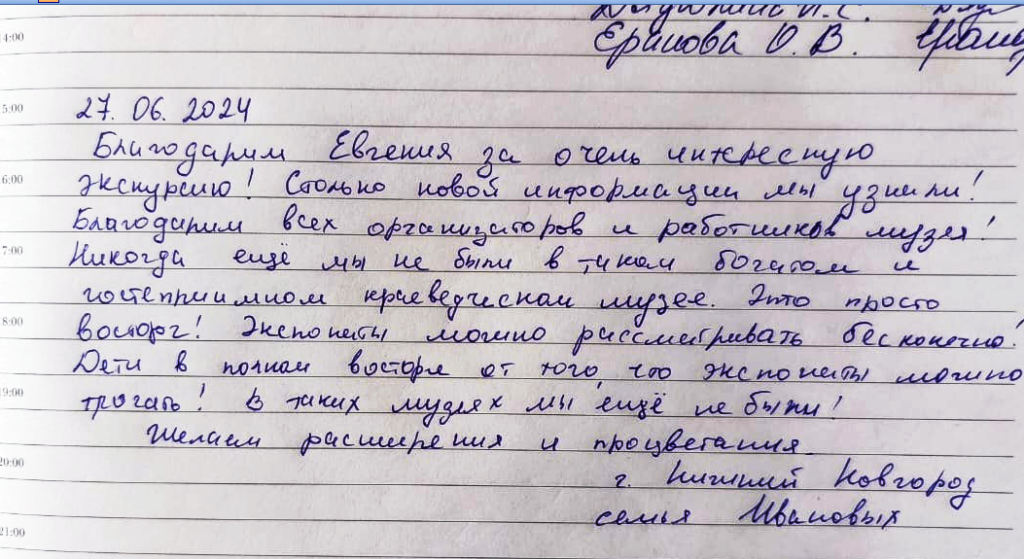 14:00
Ерипова О. В.
15:00
27. 06. 2024
Благодарим Евгения за очень интересную
16:00
экскурсию! Столько новой информации мы узнали!
Благодарим всех организаторов и работников музея!
17:00
Никогда ещё мы не были в таком богатом и
гостеприимном краеведческом музее. Это просто
18:00
восторг! Экспонаты можно рассматривать бесконечно!
Дети в полном восторге от того, что экспонаты можно
19:00
трогать! В таких музеях мы ещё не были!
Желаем расширения и процветания
20:00
г. Нижний Новгород
семья Ивановых
21:00